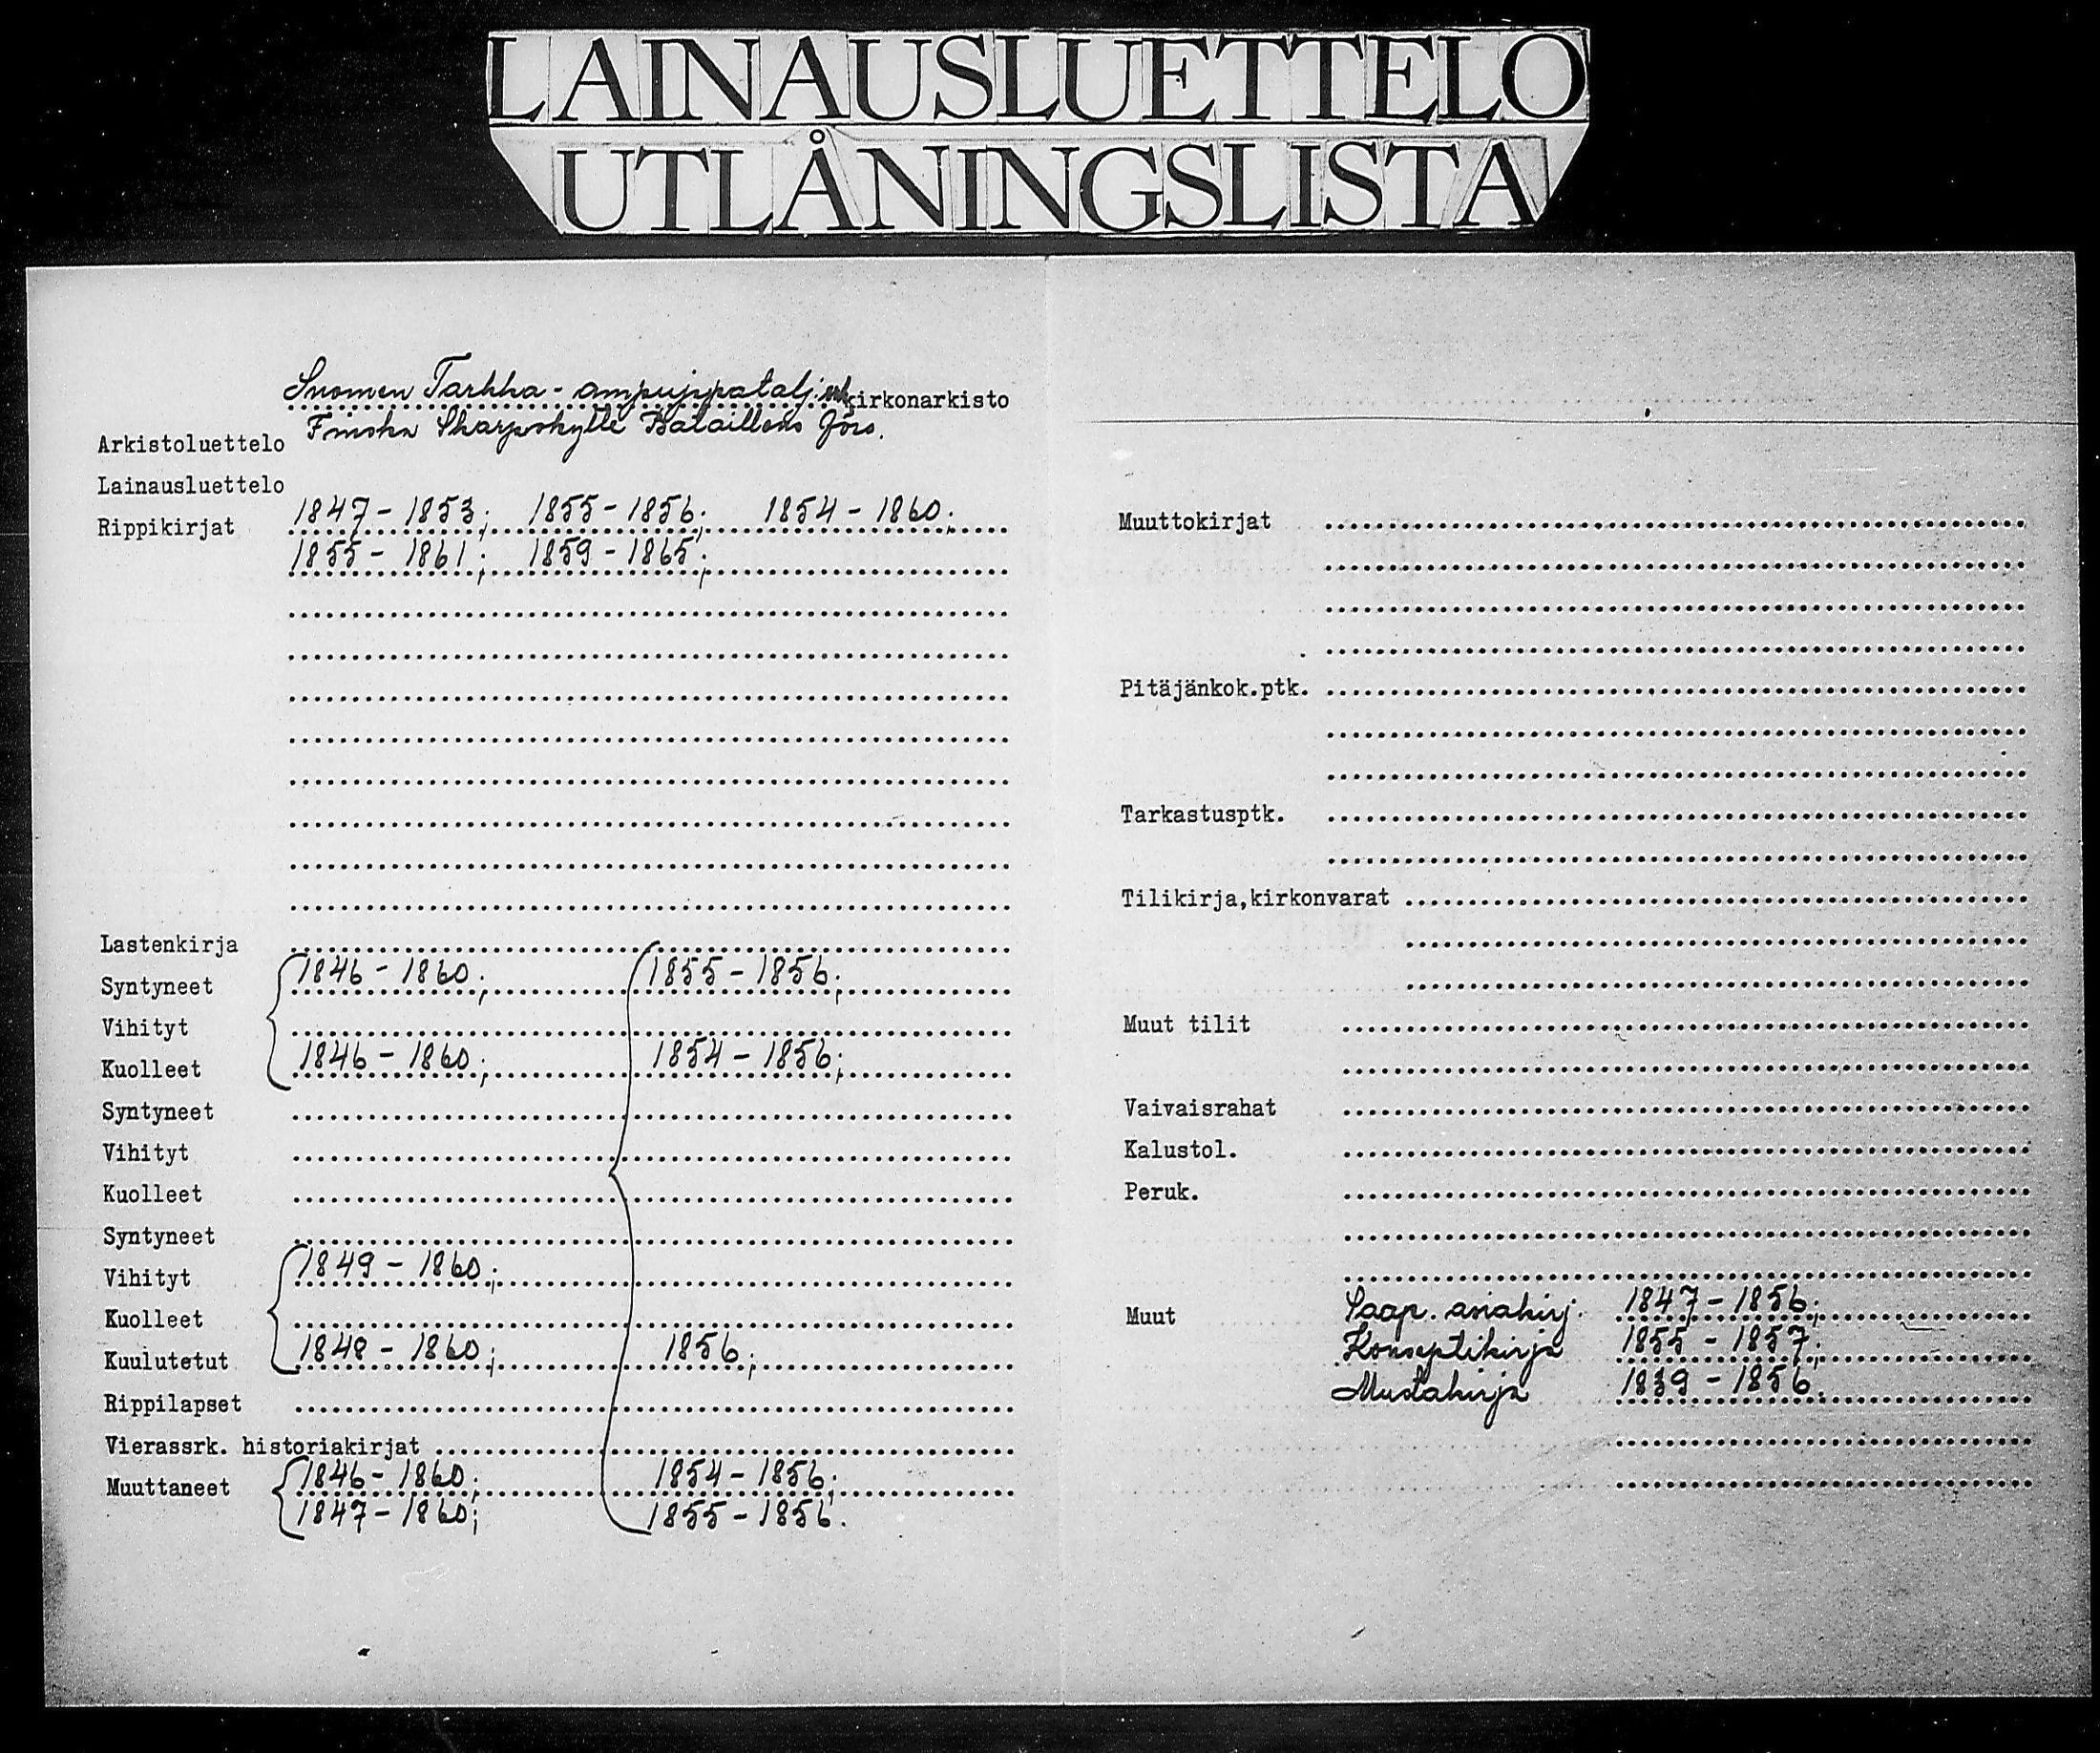 LAINAUSLUETTELO
UTLÅNINGSLISTA
Suomen Tarkka-ampujapatalj. kirkonarkisto
Finska Skarpskytte Bataillons förs.
Arkistoluettelo
Lainausluettelo
Rippikirjat 1847-1853; 1855-1856; 1854-1860;
1855-1861; 1859-1865;
Lastenkirja
Syntyneet 1846-1860; 1855-1856;
Vihityt
Kuolleet 1846-1860; 1854-1856;
Syntyneet
Vihityt
Kuolleet
Syntyneet
Vihityt 1849-1860;
Kuolleet
Kuulutetut 1848-1860; 1856;
Rippilapset
Vierassrk. historiakirjat
Muuttaneet 1846-1860; 1854-1856;
1847-1860; 1855-1856.
Muuttokirjat
Pitäjänkok.ptk.
Tarkastusptk.
Tilikirja,kirkonvarat
Muut tilit
Vaivaisrahat
Kalustol.
Peruk.
Muut Saap. asiakirj. 1847-1856;
Konseptikirja 1855-1857;
Mustakirja 1839-1856.